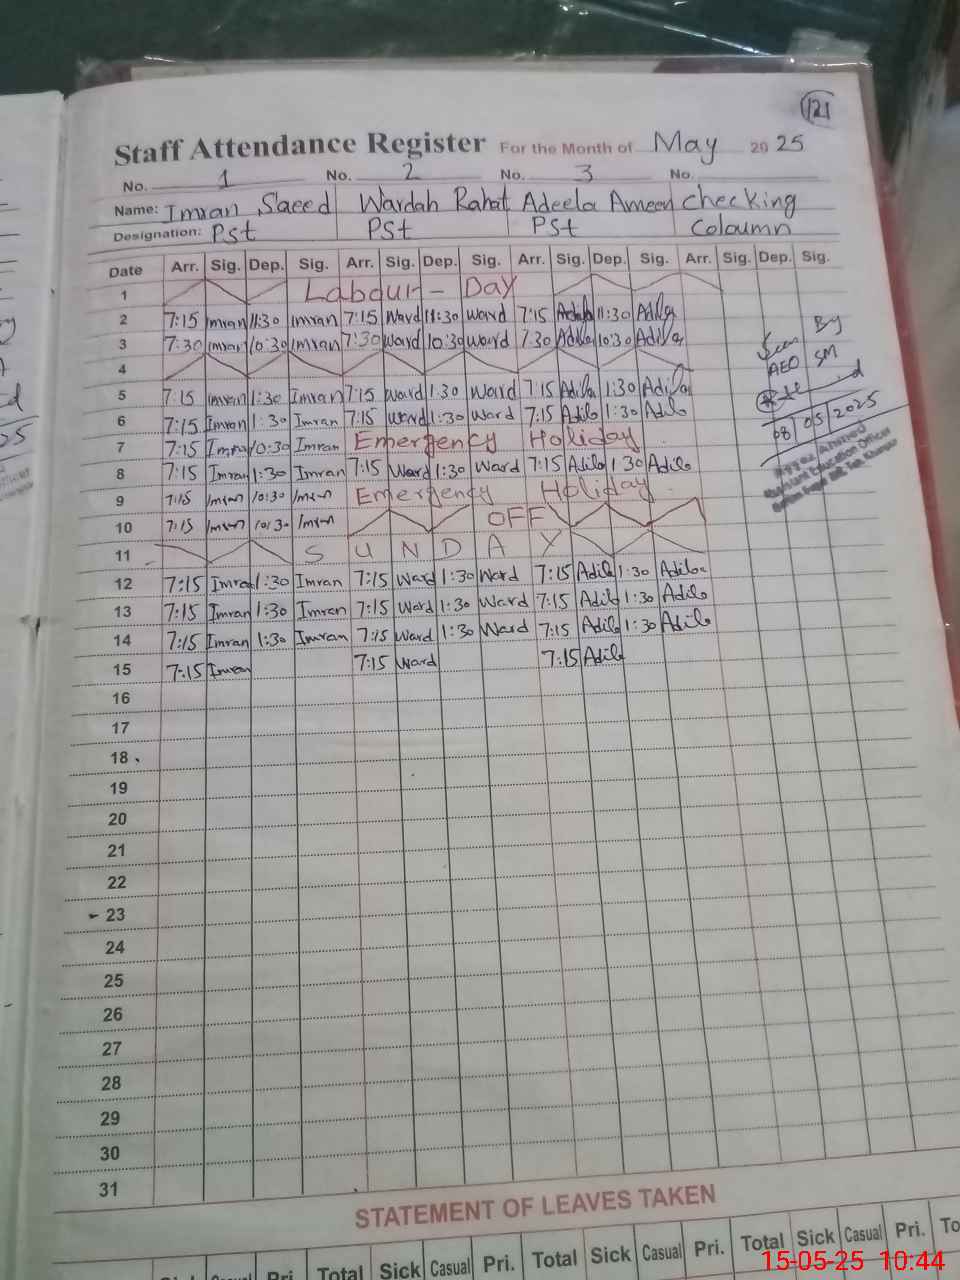 121
Staff Attendance Register For the Month of May 2025
No. 1 No. 2 No. 3 No.
Name: Imran Saeed Wardah Rahat Adeela Ameen checking
Designation: PSt PSt PSt coloumn
Date Arr. Sig. Dep. Sig. Arr. Sig. Dep. Sig. Arr. Sig. Dep. Sig. Arr. Sig. Dep. Sig.
1 Labour - Day
2 7:15 Imran 11:30 Imran 7:15 Ward 11:30 Ward 7:15 Adila 11:30 Adila
3 7:30 Imran 10:30 Imran 7:30 Ward 10:30 Ward 7:30 Adila 10:30 Adila
4
5 7:15 Imran 1:30 Imran 7:15 Ward 1:30 Ward 7:15 Adila 1:30 Adila
6 7:15 Imran 1:30 Imran 7:15 Ward 1:30 Ward 7:15 Adila 1:30 Adila
7 7:15 Imran 10:30 Imran Emergency Holiday
8 7:15 Imran 1:30 Imran 7:15 Ward 1:30 Ward 7:15 Adila 1:30 Adila
9 7:15 Imran 10:30 Imran Emergency Holiday
10 7:15 Imran 10:30 Imran OFF
11 SUNDAY
12 7:15 Imran 1:30 Imran 7:15 Ward 1:30 Ward 7:15 Adila 1:30 Adila
13 7:15 Imran 1:30 Imran 7:15 Ward 1:30 Ward 7:15 Adila 1:30 Adila
14 7:15 Imran 1:30 Imran 7:15 Ward 1:30 Ward 7:15 Adila 1:30 Adila
15 7:15 Imran 7:15 Ward 7:15 Adila
16
17
18
19
20
21
22
23
24
25
26
27
28
29
30
31
By
AEO SM
08/05/2025
Assistant Education Officer
STATEMENT OF LEAVES TAKEN
Pri. Total Sick Casual Pri. Total Sick Casual Pri. Total Sick Casual Pri.
15-05-25 10:44